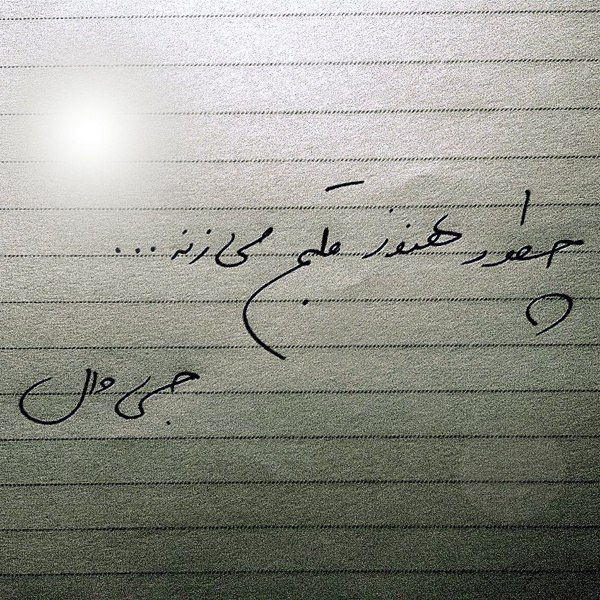 چطور هنوز قلبم می زنه ...
جی وال